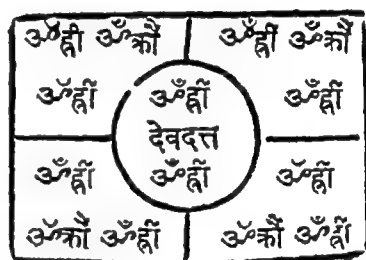 ॐह्रीं ॐक्रौं ॐह्रीं ॐक्रौं
ॐह्रीं ॐह्रीं ॐह्रीं
देवदत्त
ॐह्रीं ॐह्रीं ॐह्रीं
ॐक्रौं ॐह्रीं ॐक्रौं ॐह्रीं